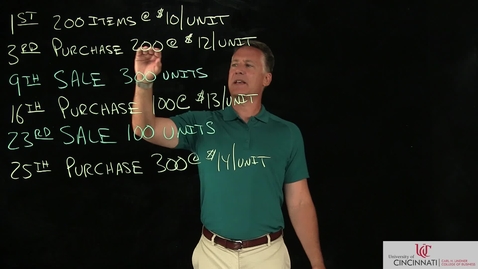 1ST 200 ITEMS @ $10/UNIT
3RD PURCHASE 200 @ $12/UNIT
9TH SALE 300 UNITS
16TH PURCHASE 100 @ $13/UNIT
23RD SALE 100 UNITS
25TH PURCHASE 300 @ $14/UNIT
University of
CINCINNATI
UC
CARL H. LINDNER
COLLEGE OF BUSINESS